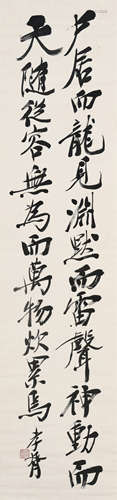 尸居而龍見淵默而雷聲神動而
天隨從容無為而萬物炊累焉
孝胥